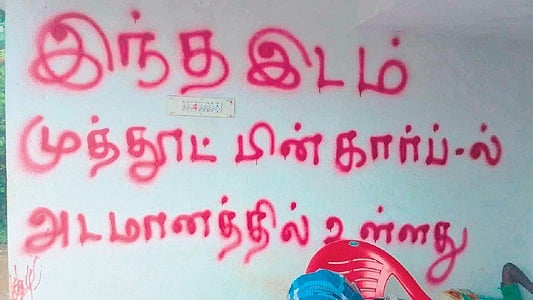 இந்த இடம்
முத்தூட் பின்கார்ப்-ல்
அடமானத்தில் உள்ளது